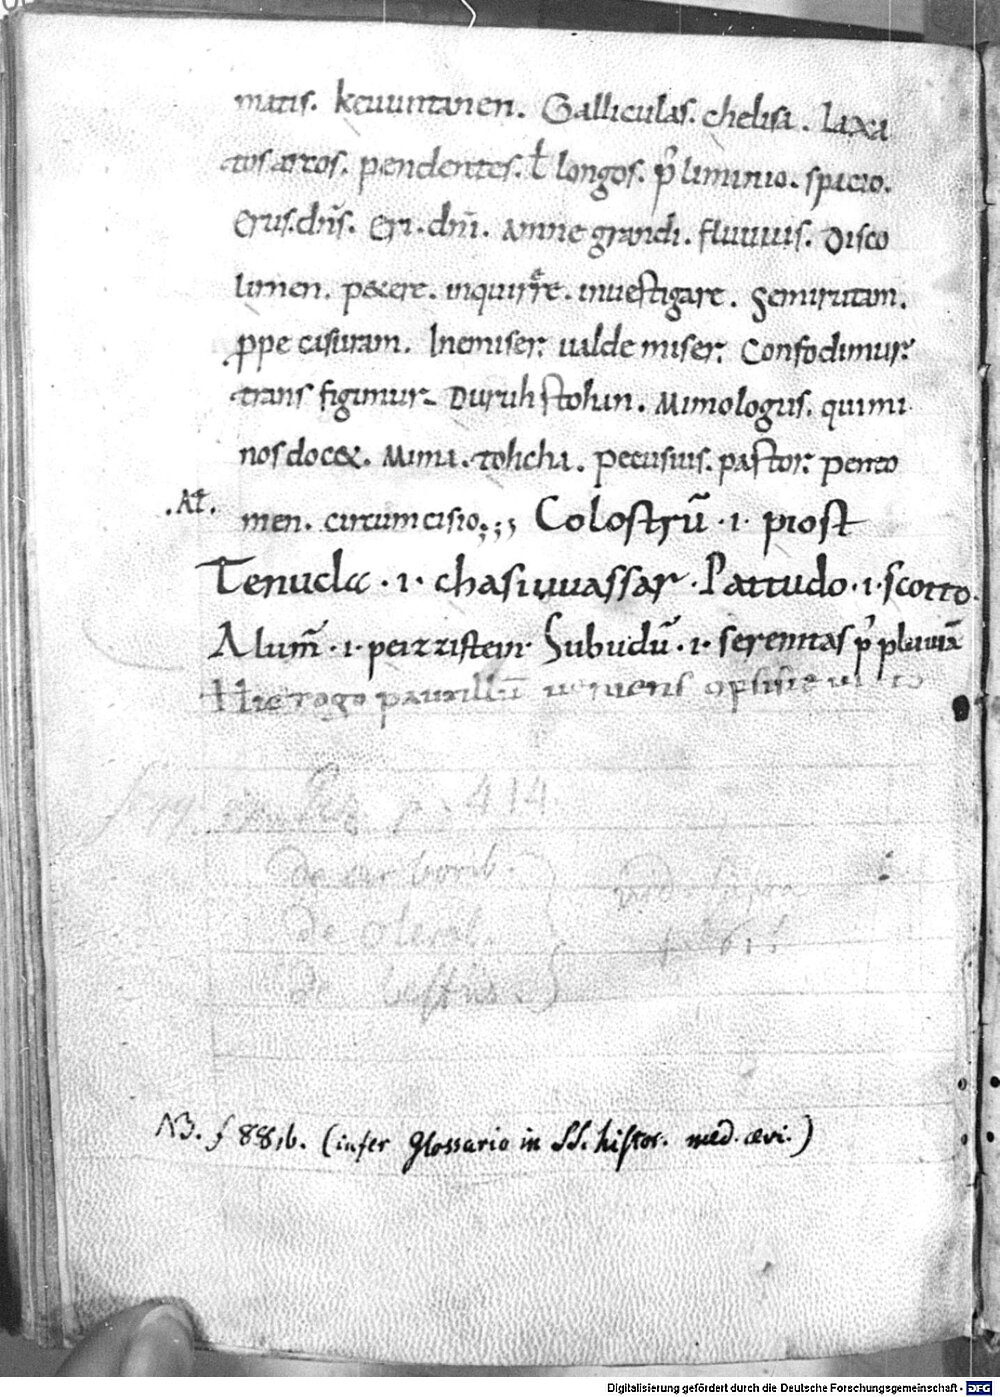 matis. keuuntanen. Galliculas. chelisa. laxa
tos artos. pendentes. ł longos. p̄ liminio. spacio.
Erus. dn̄s. Eri. dn̄i. Amne grandi. fluuius. Disco
limen. pacere. inquirere. inuestigare. Semirutam.
ꝓpe cisuram. Inemiser. ualde miser. Confodimur.
trans figimur. Duruhstohun. Mimologus. qui mi
nos docet. Mimi. tohcha. Pecusius. pastor. perito
.At. men. circumcisio. Colostrū · i · piost
Tenucla · i · chasiuuassar. Pattudo · i · scotto.
Alum̄ · i · peizzistein. Subudū · i · serenitas p̄ pluuiā
Hic rogo paucillū ueniens
414
de arborib.
de olerib.
NB. f 88,b. (infer Glossario in SS. histor. med. ævi.)
Digitalisierung gefördert durch die Deutsche Forschungsgemeinschaft - DFG